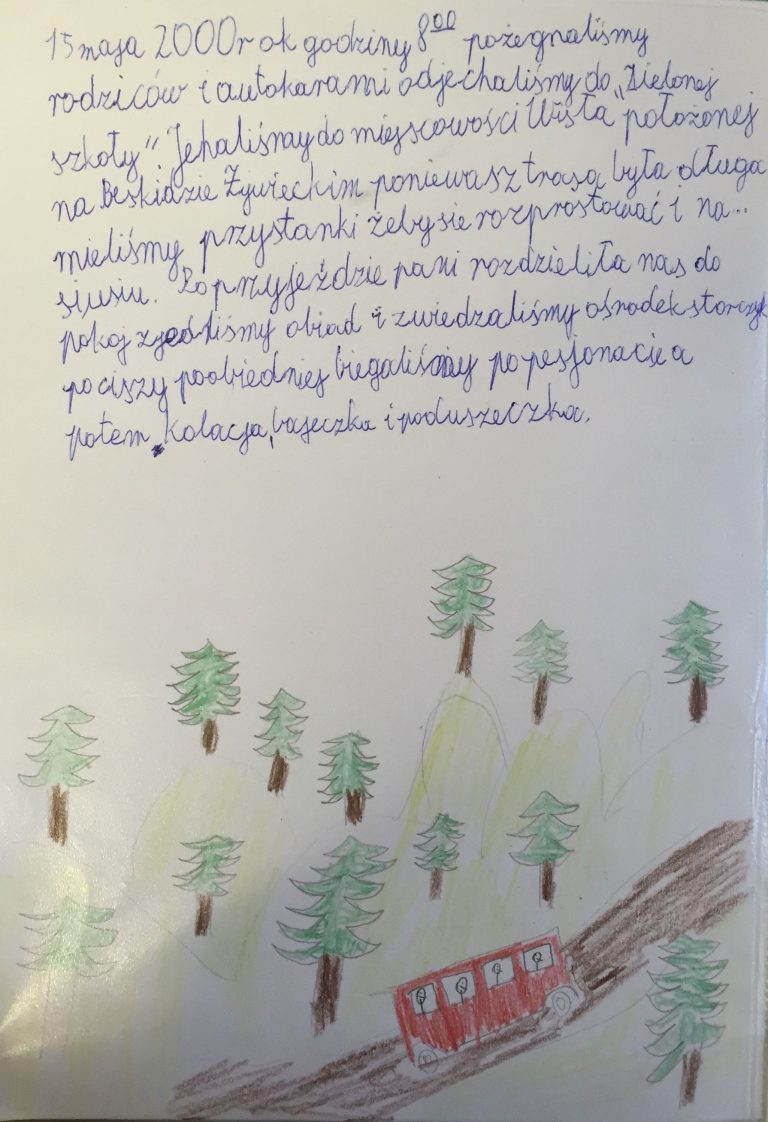 15 maja 2000r ok godziny 8⁰⁰ pożegnaliśmy
rodziców i autokarami odjechaliśmy do „Zielonej
szkoły". Jehaliśmy do miejscowości Wisła położonej
na Beskidzie Żywieckim poniewasz trasa była długa
mieliśmy przystanki żeby sie rozprostować i na..
siusiu. Po przyjeździe pani rozdzieliła nas do
pokoj zjedliśmy obiad i zwiedzaliśmy ośrodek storczyk
po ciszy poobiedniej biegaliśmy po pesjonacie a
potem kolacja, bajeczka i poduszeczka.